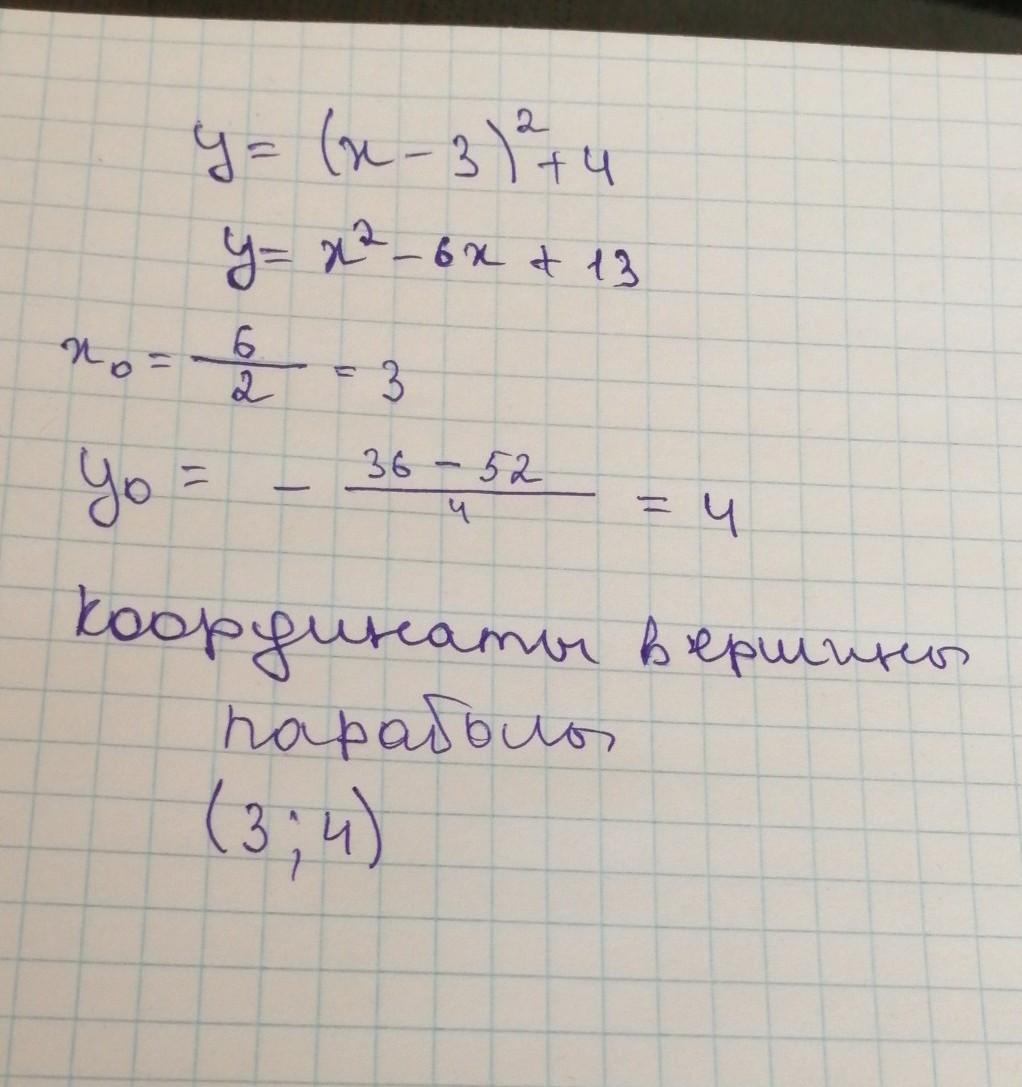 y = (x - 3)² + 4
y = x² - 6x + 13
x₀ = 6/2 = 3
y₀ = - (36 - 52)/4 = 4
Координаты вершины
параболы
(3; 4)